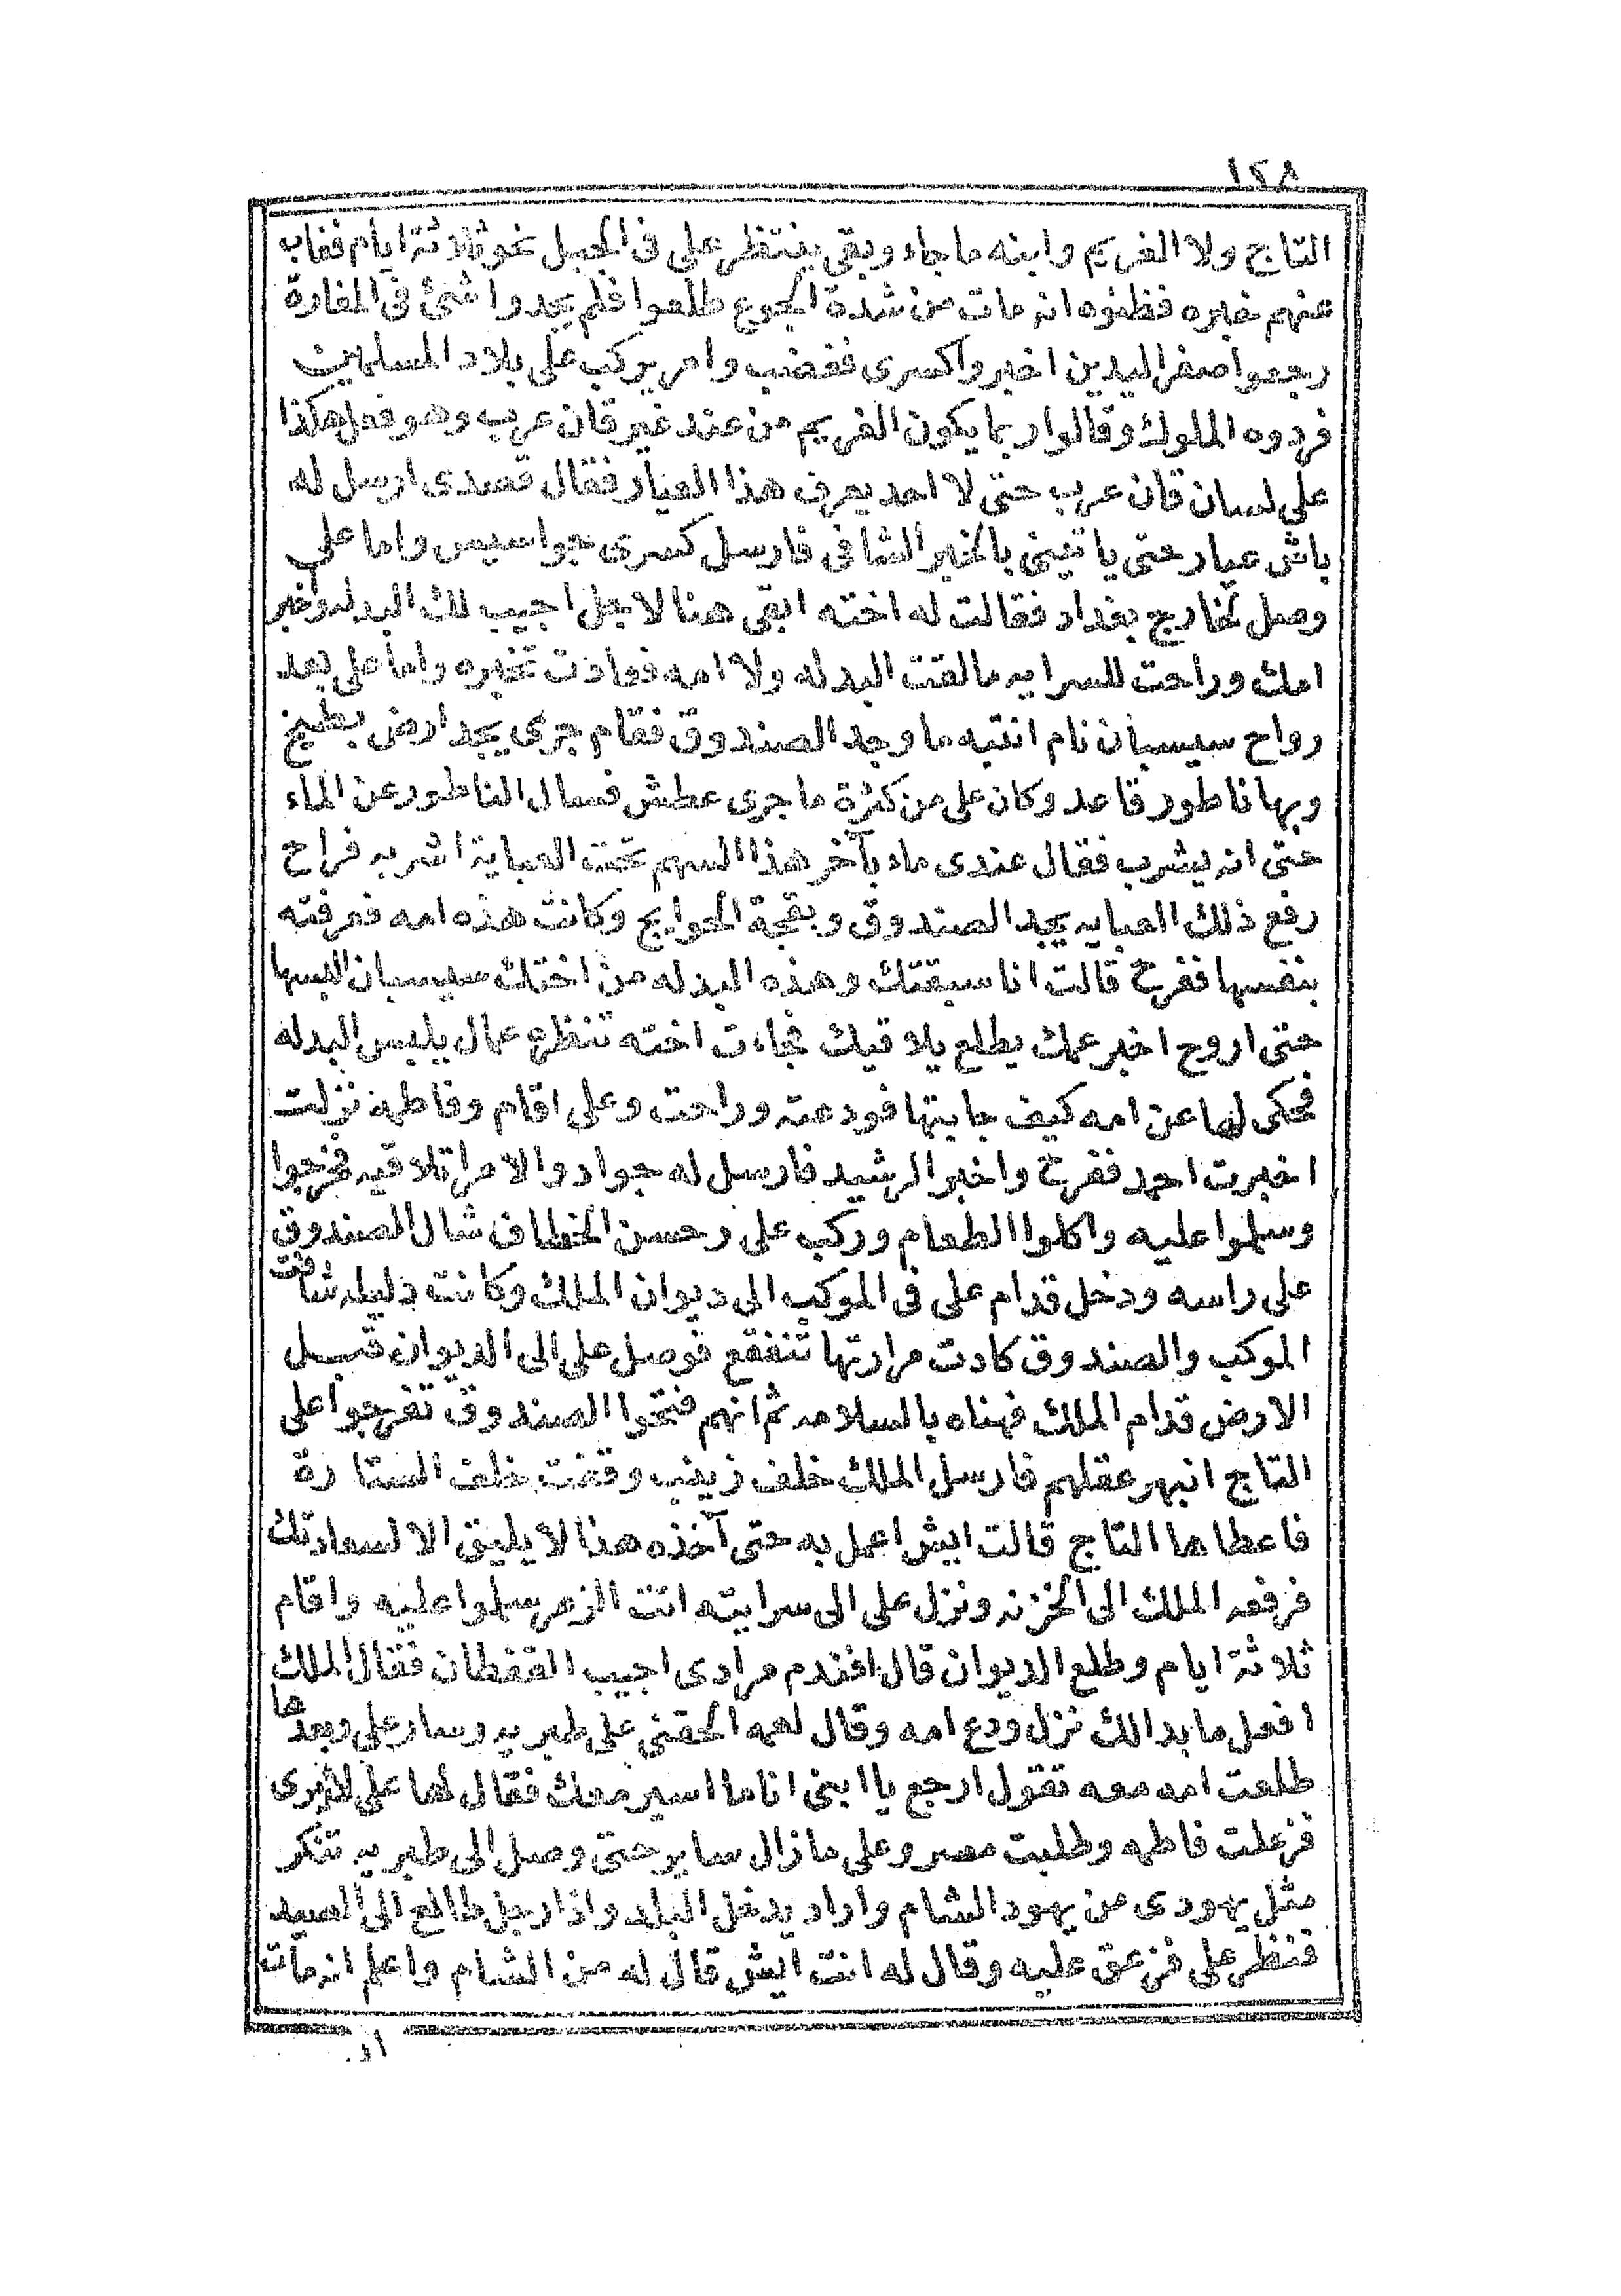 ١٢٨
التاج ولا الغريم وابنه ما جاء وبقى ينتظر على فى الجبل نحو ثلاثة ايام فغاب
عنهم خبره فظنوه انه مات من شدة الجوع طلعوا فلم يجدوا شئ فى المغارة
رجعوا صفر اليدين اخبروا كسرى فغضب وامر يركب على بلاد المسلمين
فردوه الملوك وقالوا ربما يكون الغريم من عند غير قان عرب وهو فعل هكذا
على لسان قان عرب حتى لا احد يعرف هذا العيار فقال قصدى ارسل له
باش عيار حتى ياتينى بالخبر الشافى فارسل كسرى جواسيس واما على
وصل لخارج بغداد فقالت له اخته ابقى هنا لاجل اجيب لك البدله واخبر
امك وراحت للسرايه ما لقت البدله ولا امه فعادت تخبره واما على بعد
رواح سيسبان نام انتبه ما وجد الصندوق فقام جرى يجد ارض بطيخ
وبها ناطور قاعد وكان على من كثرة ما جرى عطش فسال الناطور عن الماء
حتى انه يشرب فقال عندى ماء بآخر هذا السهم تحت العباية اشربه فراح
رفع ذلك العبايه يجد الصندوق وبقجة الحوايج وكانت هذه امه فعرفته
بنفسها ففرح قالت انا سبقتك وهذه البدله من اختك سيسبان البسها
حتى اروح اخبر عمك يطلع يلاقيك فجاءت اخته تنظره عمال يلبس البدله
فحكى لها عن امه كيف جابتها فودعته وراحت وعلى اقام وفاطمه نزلت
اخبرت احمد ففرح واخبر الرشيد فارسل له جواد والامرا تلاقيه فخرجوا
وسلموا عليه واكلوا الطعام وركب على وحسن الخطاف شال الصندوق
على راسه ودخل قدام على فى الموكب الى ديوان الملك وكانت دليله شافت
الموكب والصندوق كادت مرارتها تنفقع فوصل على الى الديوان قبل
الارض قدام الملك فهناه بالسلامه ثم انهم فتحوا الصندوق تفرجوا على
التاج انبهر عقلهم فارسل الملك خلف زينب وقفت خلف الستارة
فاعطاها التاج قالت ايش اعمل به حتى آخذه هذا لا يليق الا لسعادتك
فرفعه الملك الى الخزنه ونزل على الى سرايته اتت الزعر سلموا عليه واقام
ثلاثة ايام وطلع الديوان قال افندم مرادى اجيب القفطان فقال الملك
افعل ما بدالك نزل ودع امه وقال لعمه الحقنى على طبريه وسار على وبعدها
طلعت امه معه تقول ارجع يا ابنى انا ما اسير معك فقال لها على
فزعلت فاطمه وطلبت مصر وعلى ما زال ساير حتى وصل الى طبريه تنكر
مثل يهودى من يهود الشام واراد يدخل البلد واذا رجل طالع الى الصيد
فنظر على فزعق عليه وقال له انت ايش قال له من الشام واعلم انه مات